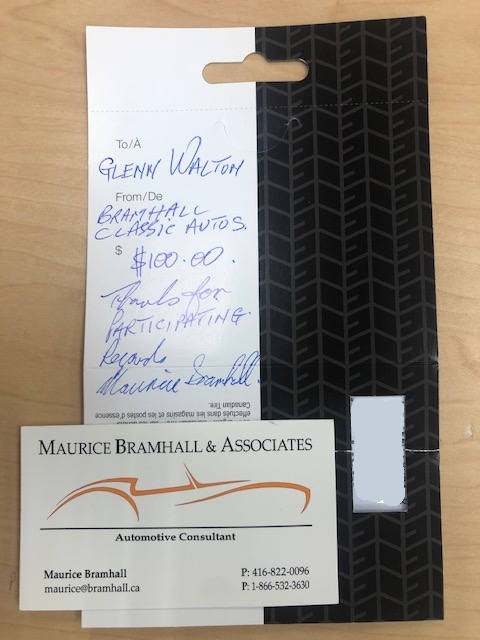 To/À
GLENN WALTON
From/De
BRAMHALL
CLASSIC AUTOS.
$
$100.00.
Thanks for
PARTICIPATING.
Regards
Maurice Bramhall.
effectués dans les magasins et les postes d'essence
Canadian Tire.
MAURICE BRAMHALL & ASSOCIATES
Automotive Consultant
Maurice Bramhall
P: 416-822-0096
maurice@bramhall.ca
P: 1-866-532-3630